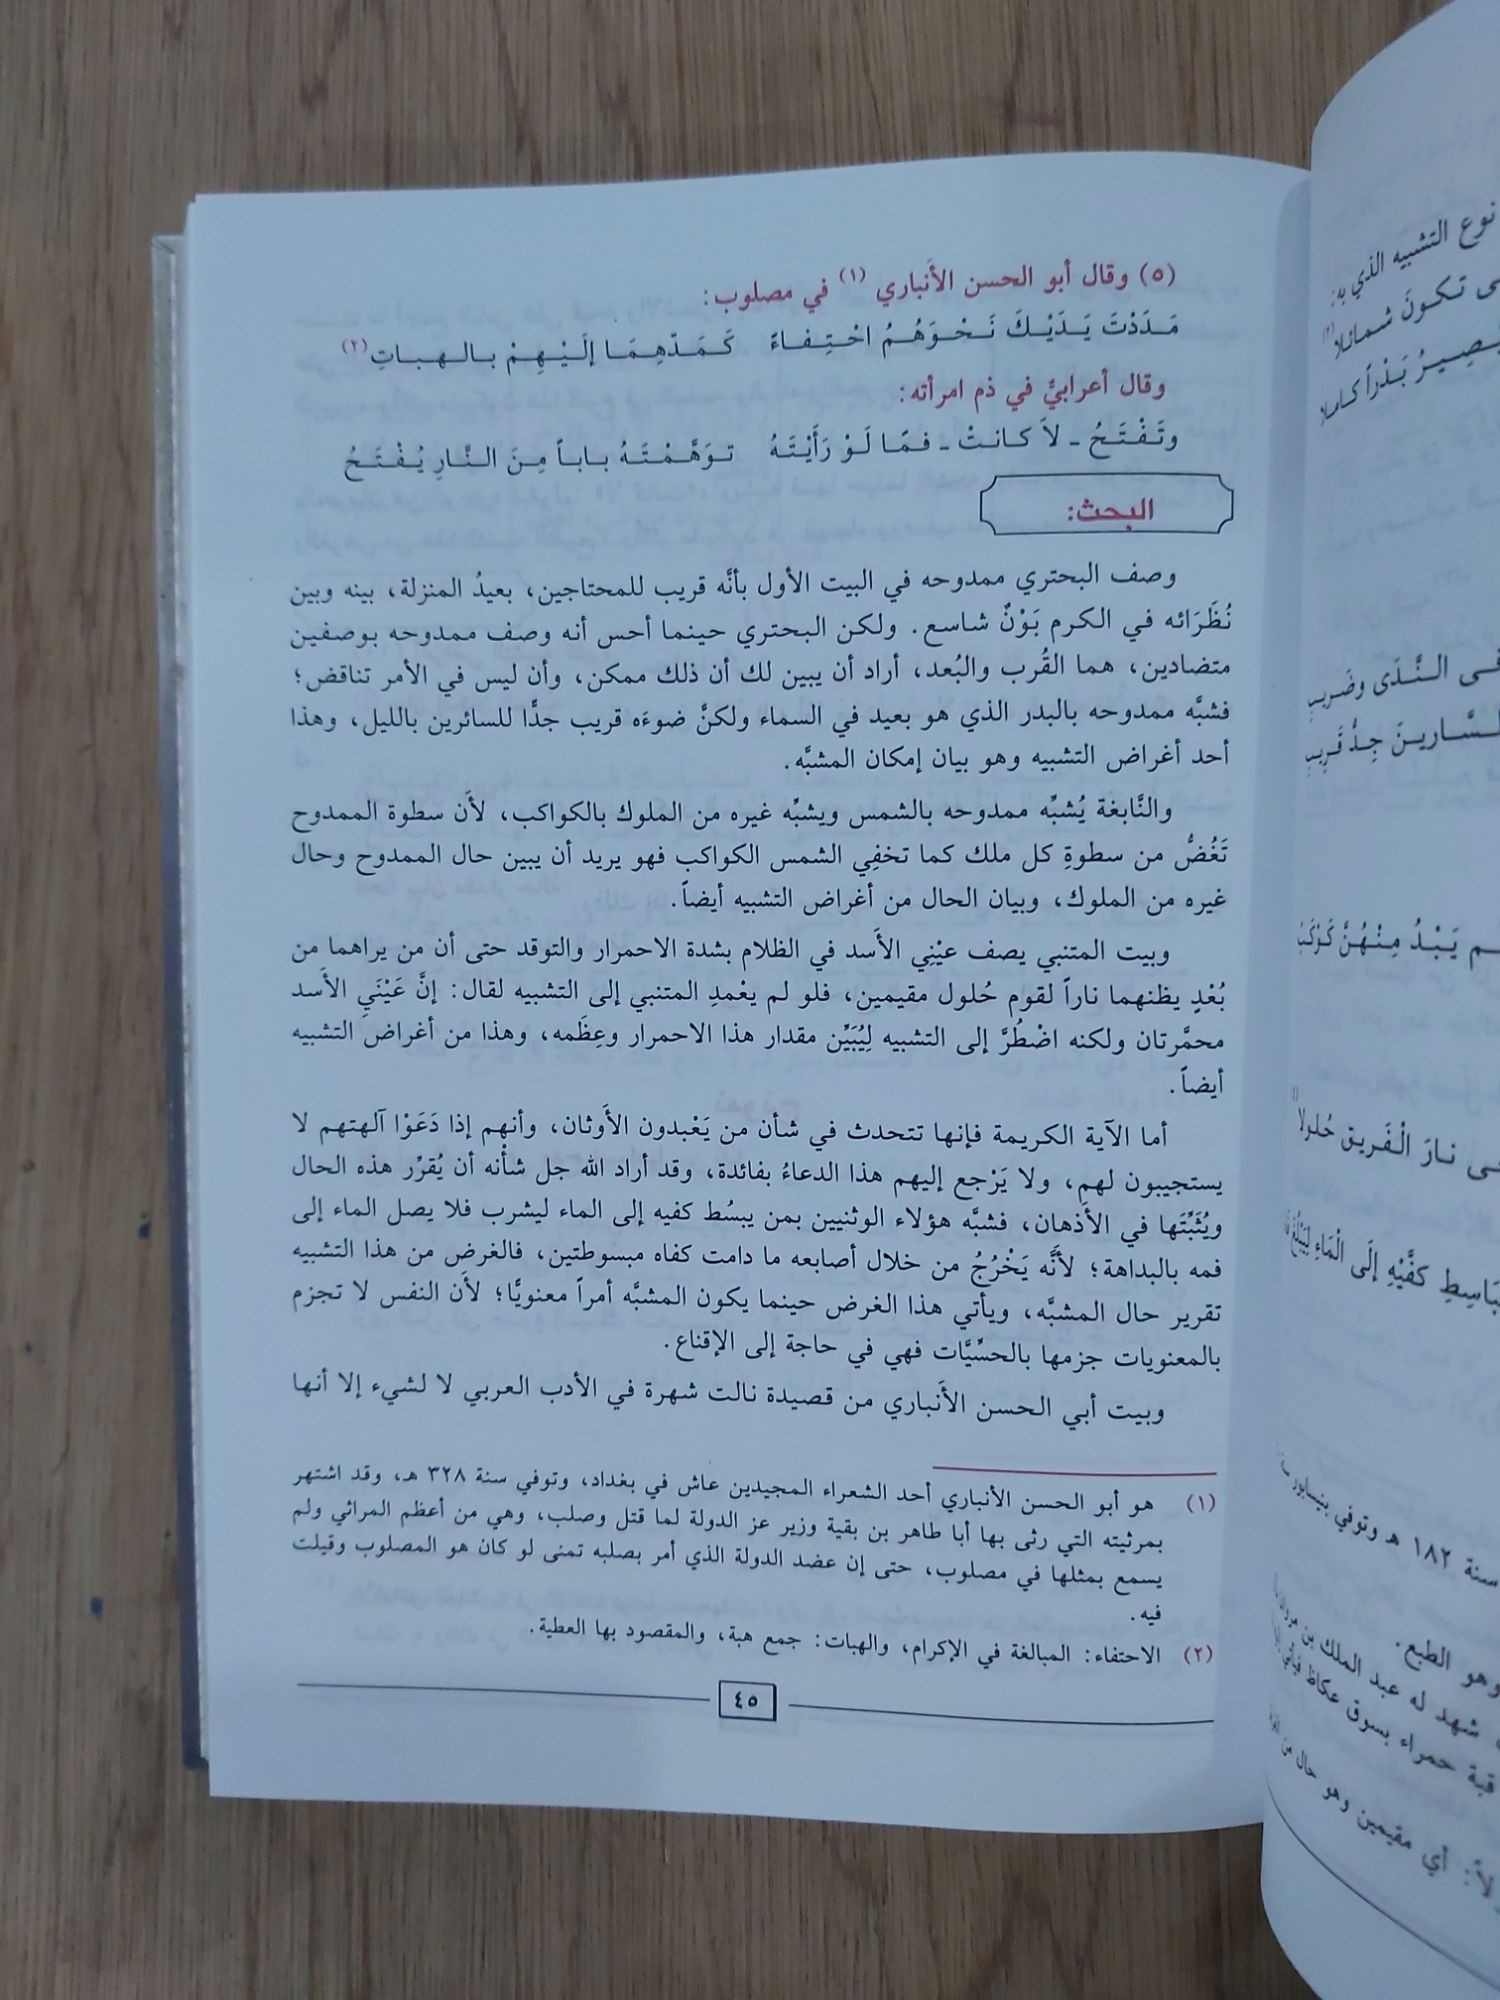 (٥) وقال أبو الحسن الأَنباري (١) في مصلوب:
مَـدَدْتَ يَـدَيْـكَ نَـحْـوَهُـمُ احْـتِـفـاءً كَـمَـدِّهِـمَـا إلَـيْـهِـمْ بـالـهـبـاتِ(٢)
وقال أعرابيٌّ في ذم امرأته:
وتَـفْـتَـحُ ـ لاَ كـانـتْ ـ فـمًـا لَـوْ رَأَيْـتَـهُ تـوَهَّـمْـتَـهُ بـابـاً مِـنَ الـنَّـارِ يُـفْـتَـحُ
البحث:
وصف البحتري ممدوحه في البيت الأول بأنَّه قريب للمحتاجين، بعيدُ المنزلة، بينه وبين
نُظَرَائه في الكرم بَوْنٌ شاسع. ولكن البحتري حينما أحس أنه وصف ممدوحه بوصفين
متضادين، هما القُرب والبُعد، أراد أن يبين لك أن ذلك ممكن، وأن ليس في الأمر تناقض؛
فشبَّه ممدوحه بالبدر الذي هو بعيد في السماء ولكنَّ ضوءَه قريب جدًّا للسائرين بالليل، وهذا
أحد أغراض التشبيه وهو بيان إمكان المشبَّه.
والنَّابغة يُشبِّه ممدوحه بالشمس ويشبِّه غيره من الملوك بالكواكب، لأَن سطوة الممدوح
تَغُضُّ من سطوةِ كل ملك كما تخفِي الشمس الكواكب فهو يريد أن يبين حال الممدوح وحال
غيره من الملوك، وبيان الحال من أغراض التشبيه أيضاً.
وبيت المتنبي يصف عيْنِي الأَسد في الظلام بشدة الاحمرار والتوقد حتى أن من يراهما من
بُعْدٍ يظنهما ناراً لقوم حُلول مقيمين، فلو لم يعْمدِ المتنبي إلى التشبيه لقال: إنَّ عَيْنَيِ الأَسد
محمَّرتان ولكنه اضْطُرَّ إلى التشبيه لِيُبَيِّن مقدار هذا الاحمرار وعِظَمه، وهذا من أغراض التشبيه
أيضاً.
أما الآية الكريمة فإنها تتحدث في شأن من يَعْبدون الأَوثان، وأنهم إذا دَعَوْا آلهتهم لا
يستجيبون لهم، ولا يَرْجع إليهم هذا الدعاءُ بفائدة، وقد أراد الله جل شأْنه أن يُقرِّر هذه الحال
ويُثَبِّتَها في الأَذهان، فشبَّه هؤلاء الوثنيين بمن يبسُط كفيه إلى الماء ليشرب فلا يصل الماء إلى
فمه بالبداهة؛ لأَنَّه يَخْرُجُ من خلال أصابعه ما دامت كفاه مبسوطتين، فالغرض من هذا التشبيه
تقرير حال المشبَّه، ويأتي هذا الغرض حينما يكون المشبَّه أمراً معنويًّا؛ لأَن النفس لا تجزم
بالمعنويات جزمها بالحسِّيَّات فهي في حاجة إلى الإقناع.
وبيت أبي الحسن الأَنباري من قصيدة نالت شهرة في الأدب العربي لا لشيء إلا أنها
(١) هو أبو الحسن الأنباري أحد الشعراء المجيدين عاش في بغداد، وتوفي سنة ٣٢٨ هـ، وقد اشتهر
بمرثيته التي رثى بها أبا طاهر بن بقية وزير عز الدولة لما قتل وصلب، وهي من أعظم المراثي ولم
يسمع بمثلها في مصلوب، حتى إن عضد الدولة الذي أمر بصلبه تمنى لو كان هو المصلوب وقيلت
فيه.
(٢) الاحتفاء: المبالغة في الإكرام، والهبات: جمع هبة، والمقصود بها العطية.
٤٥
نوع التشبيه الذي به:
تـكـونَ شـمـائـلا
بَـدْراً كـامـلا
الـنَّـدَى وضَـريـبِ
جِـدُّ قَـرِيـبِ
يَـبْـدُ مِـنْـهُـنَّ كَـوْكَـبُ
نـارَ الْـفَـريـق حُـلـولا
كَفَّيْهِ إلَى الْمَاءِ لِيَبْلُغَ
سنة ١٨٢ هـ وتوفي بنيسابور
وهو الطبع.
شهد له عبد الملك بن مروان
قبة حمراء بسوق عكاظ
أي مقيمين وهو حال من